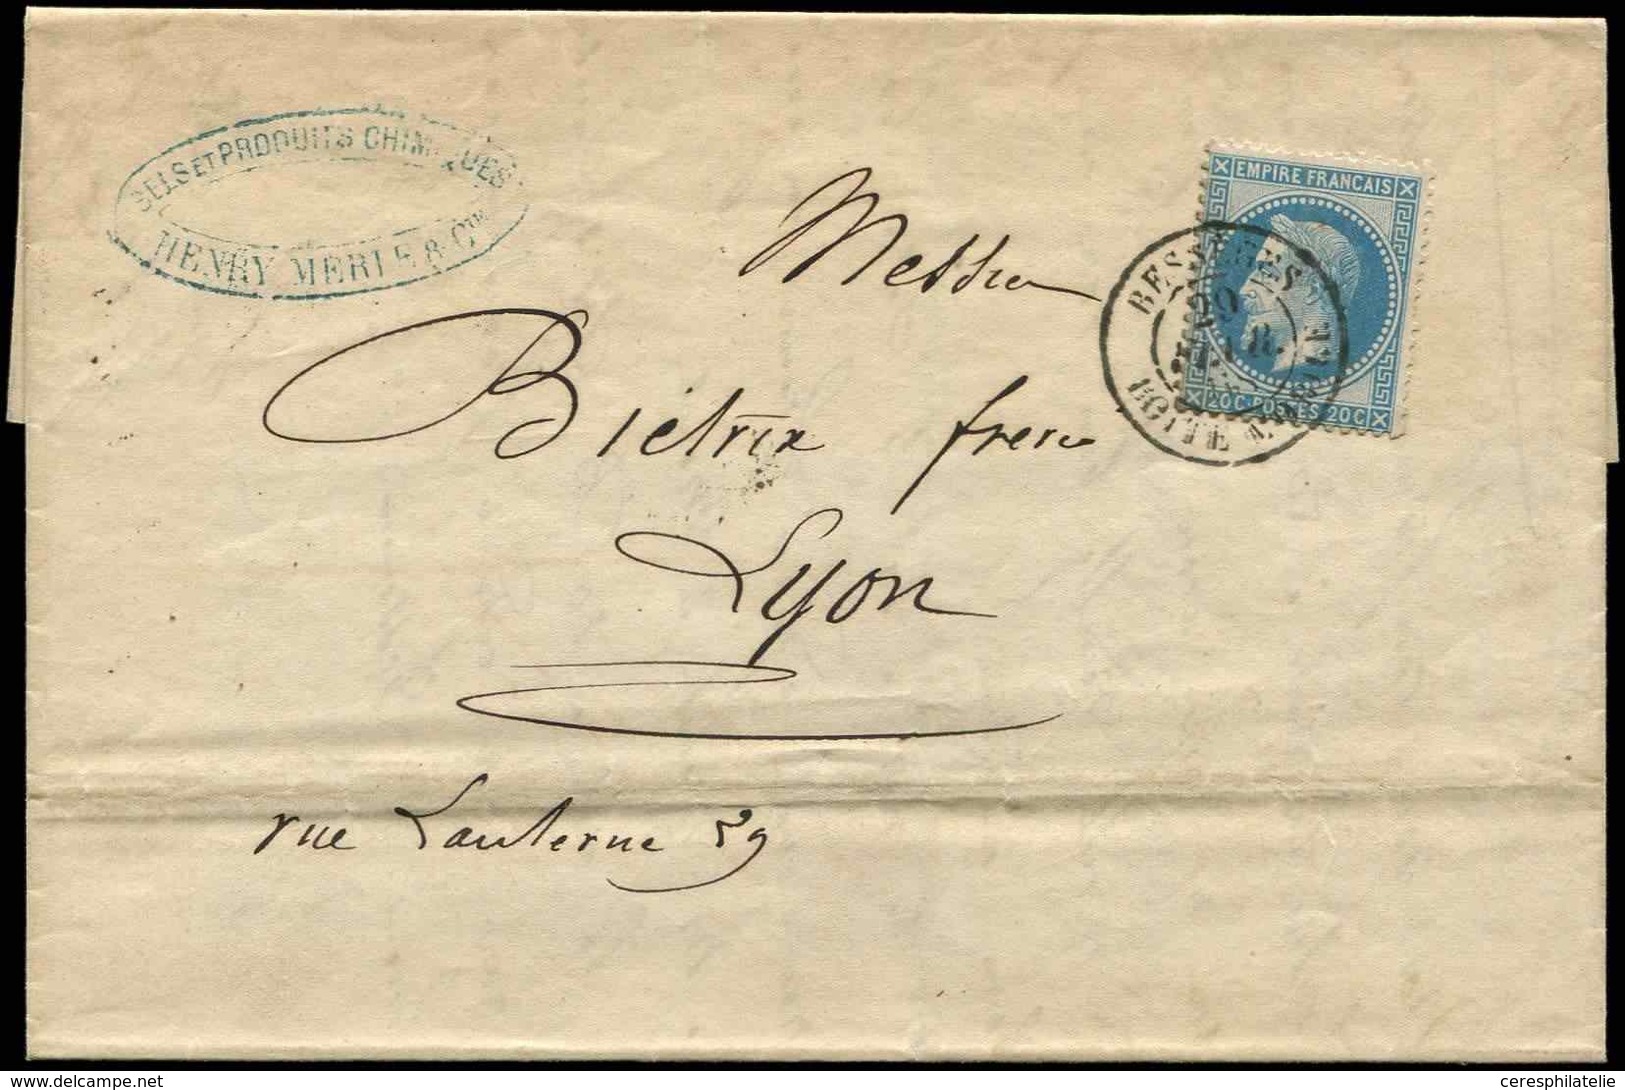 SELS ET PRODUITS CHIMIQUES
HENRY MERLE & Cie
EMPIRE FRANCAIS
20C POSTES 20C
Messieu
Biétrix frères
Lyon
rue Lanterne 29
www.delcampe.net
ceresphilatelie